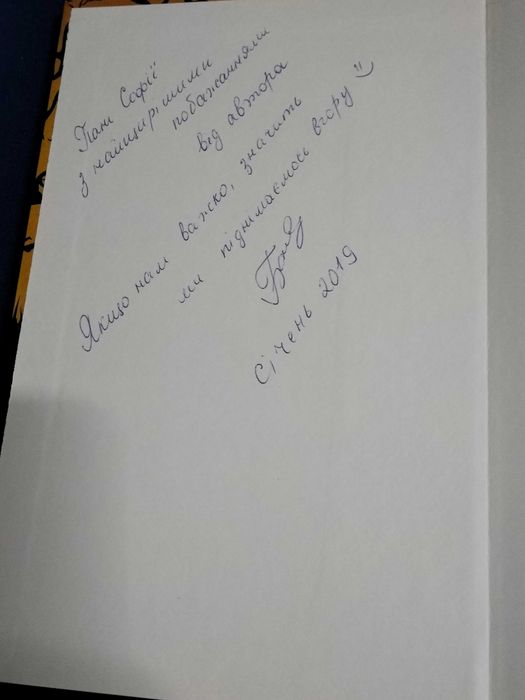 Пані Софії
з найщирішими
побажаннями
від автора
Якщо нам важко, значить
ми піднімаємось вгору :)
Січень 2019